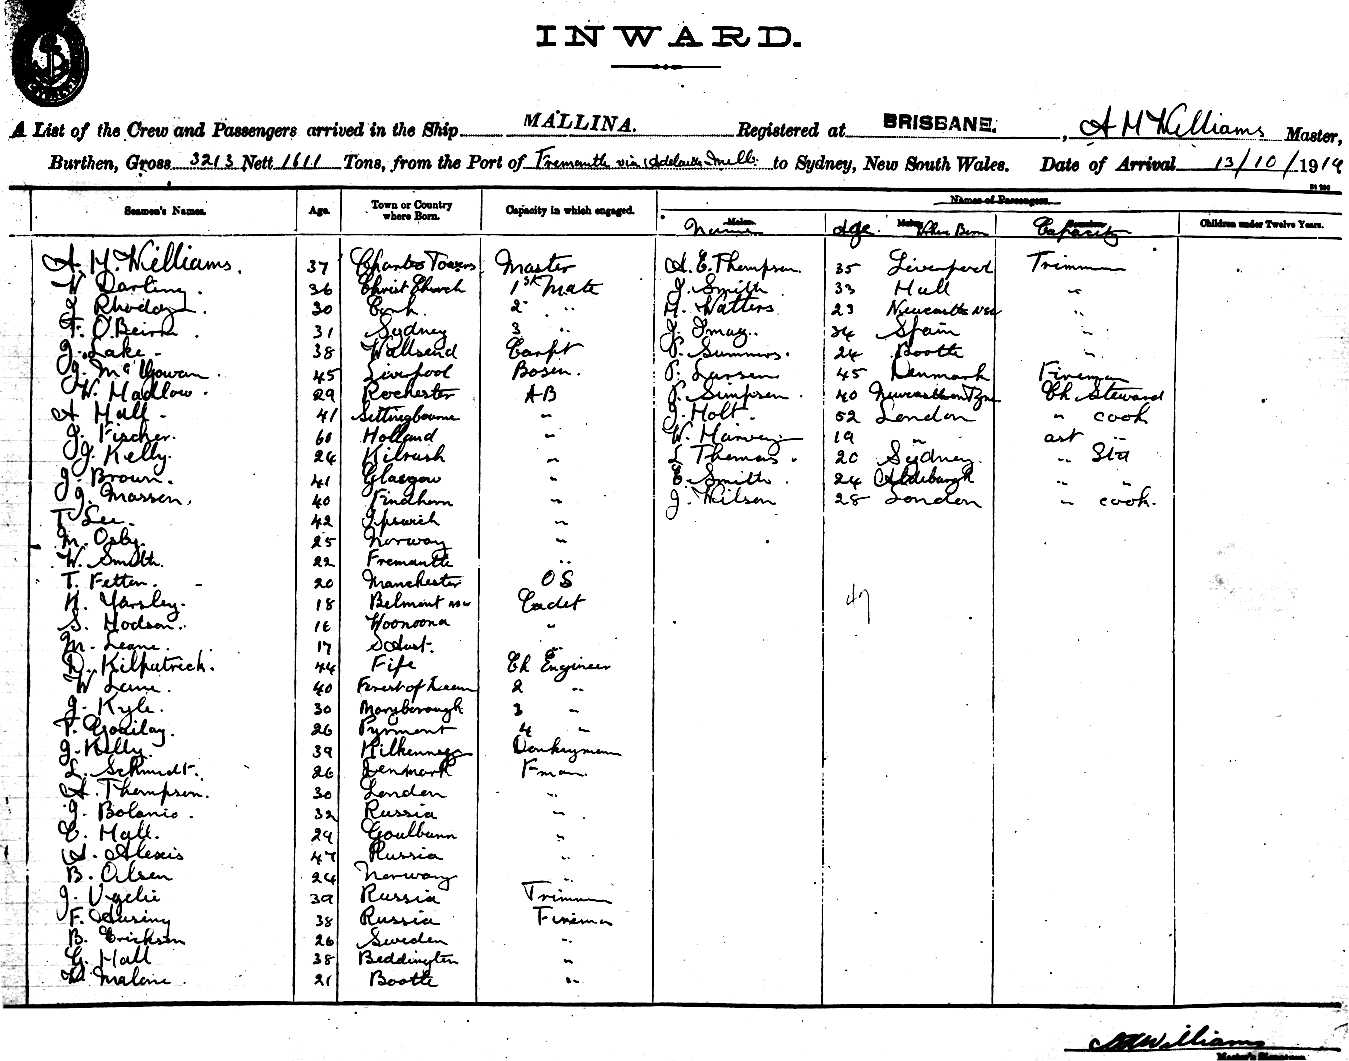 INWARD.
A List of the Crew and Passengers arrived in the Ship MALLINA. Registered at BRISBANE. , A M Williams Master,
Burthen, Gross 3213 Nett 1611 Tons, from the Port of Fremantle via Adelaide, Melb. to Sydney, New South Wales. Date of Arrival 13/10/1919
Seamen's Names. Age. Town or Country where Born. Capacity in which engaged. Names of Passengers.
Name Age Where Born Capacity Children under Twelve Years.
A. M. Williams. 37 Charters Towers Master A. E. Thompson 35 Liverpool Trimmer
W Darling. 36 Christ Church 1st Mate J. Smith 33 Hull "
J Rhodes. 30 Cork 2 " H. Watters 23 Newcastle NSW "
F. O'Beirn 31 Sydney 3 " J. Imaz. 34 Spain "
J. Lake. 38 Wallsend Carpt P. Summers. 24 Bootle "
J. McGowan. 45 Liverpool Bosun. P. Larsen 45 Denmark Fireman
W. Hadlow. 29 Rochester AB J. Simpson. 40 Newcastle on Tyne Ch Steward
A Hall. 41 Sittingbourne " J. Holt. 52 London " cook
J. Fischer. 60 Holland " W. Harvey. 19 " asst "
J. Kelly. 24 Kilrush " L Thomas. 20 Sydney. " Std
J. Brown. 41 Glasgow " E. Smith. 24 Aldeburgh " "
J. Massen. 40 Findhorn " J. Wilson 28 London " cook.
T Lee. 42 Ipswich "
M. Osby. 25 Norway "
W. Smith. 22 Fremantle "
T. Fetten. 20 Manchester OS
K. Yarsley. 18 Belmont NSW Cadet
S. Hodson. 16 Woonoona "
M. Leane. 17 S Aust. "
D. Kilpatrick. 44 Fife Ch Engineer
W Lane. 40 Forest of Dean 2 "
J. Kyle. 30 Maryborough 3 "
P. Gourlay. 26 Pyrmont 4 "
J. Kelly. 39 Kilkenny Donkeyman
L. Schmidt. 26 Denmark Fman.
A. Thompson. 30 London "
J. Bolanis. 32 Russia "
C. Hall. 29 Goulburn "
A. Alexis 47 Russia "
B. Olsen 24 Norway "
J. 39 Russia Trimmer
F. 38 Russia Fireman
B. Erickson 26 Sweden "
G. Hall 38 Beddington "
D. Malone. 21 Bootle "
47
A M Williams
Master's Signature.